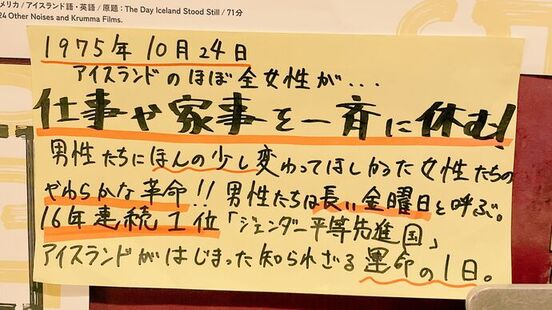 メリカ / アイスランド語・英語 / 原題：The Day Iceland Stood Still / 71分
24 Other Noises and Krumma Films.
1975年10月24日
アイスランドのほぼ全女性が...
仕事や家事を一斉に休む!
男性たちにほんの少し変わってほしかった女性たちの
やわらかな革命!! 男性たちは長い金曜日と呼ぶ。
16年連続1位「ジェンダー平等先進国」
アイスランドがはじまった知られざる運命の1日。